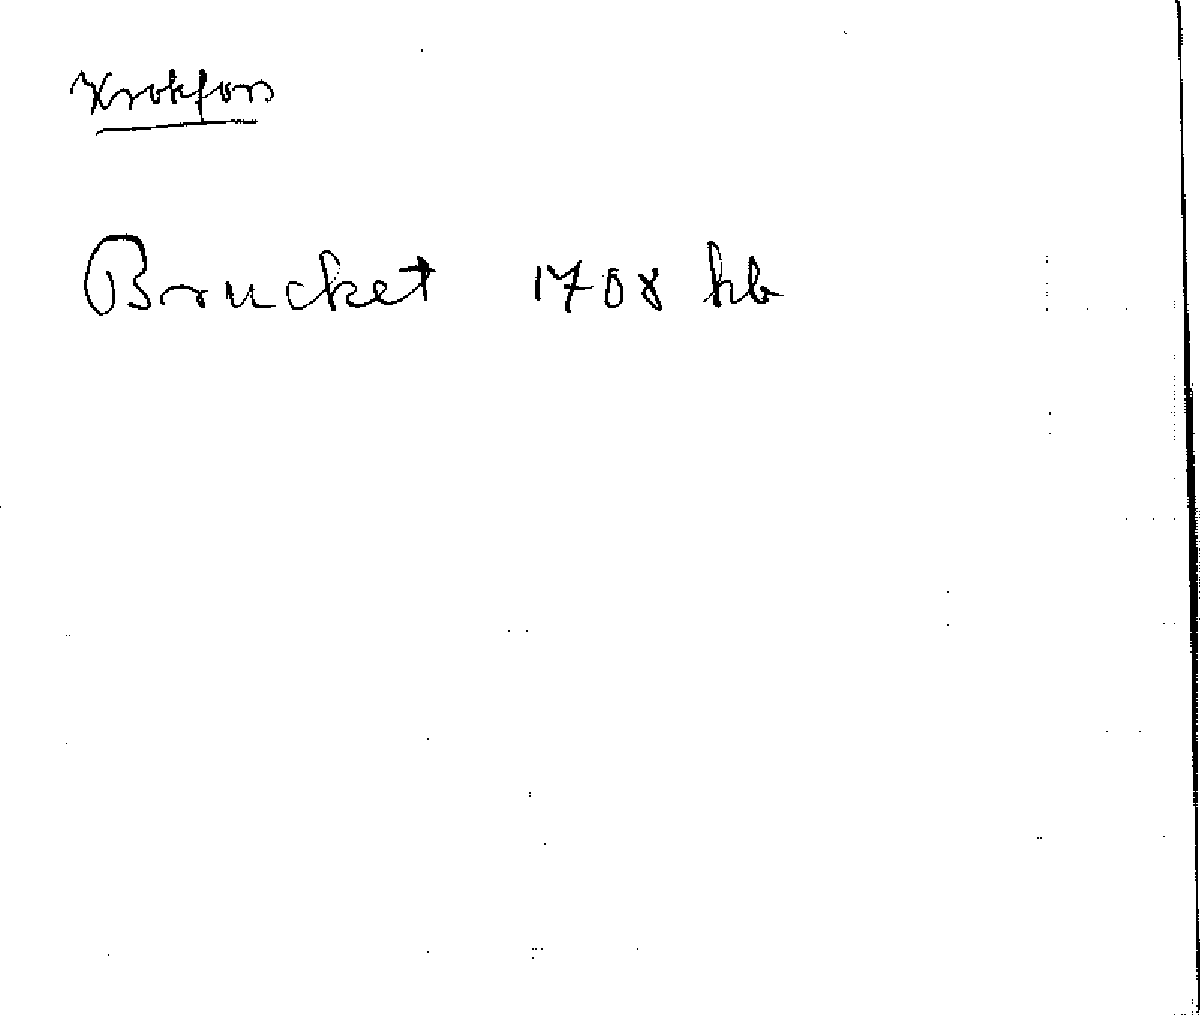 Krokfors
Brucket 1708 hb